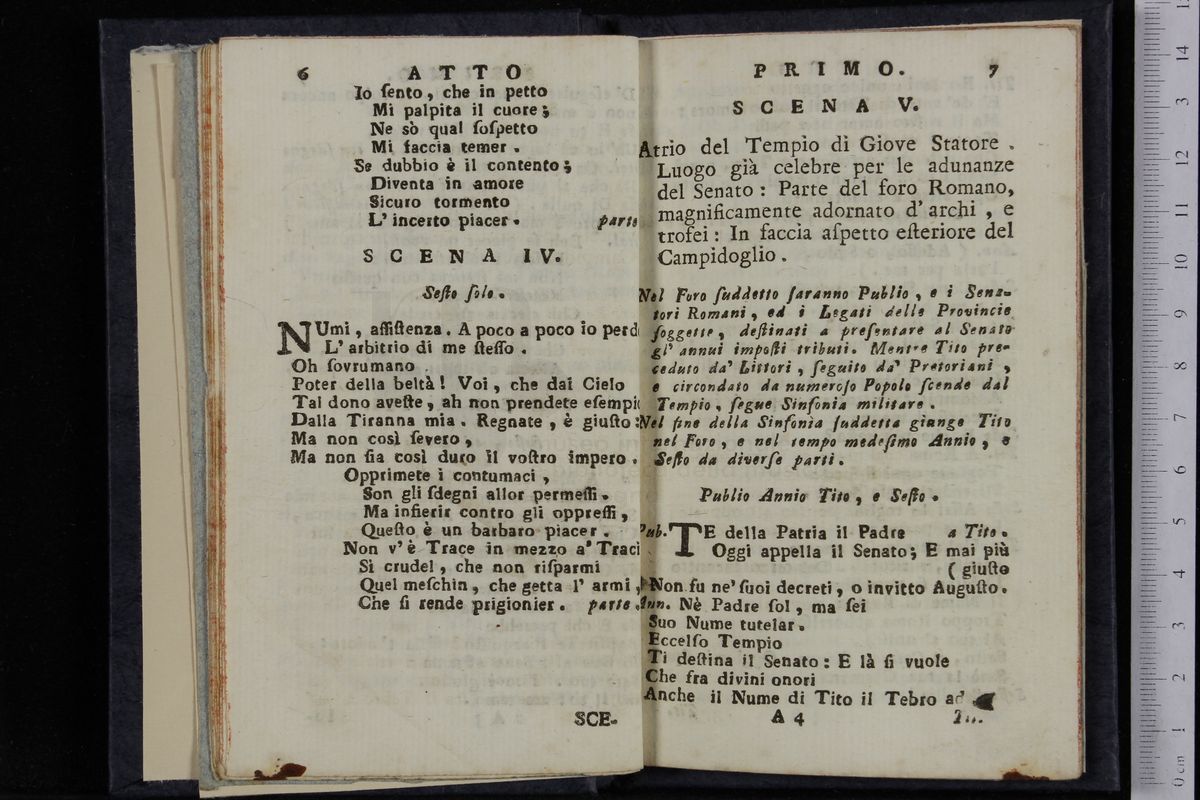 6 ATTO
Io ſento, che in petto
Mi palpita il cuore;
Ne sò qual ſoſpetto
Mi faccia temer.
Se dubbio è il contento;
Diventa in amore
Sicuro tormento
L'incerto piacer. parte
SCENA IV.
Seſto ſolo.
NUmi, aſſiſtenza. A poco a poco io perd
L'arbitrio di me ſteſſo.
Oh ſovrumano
Poter della beltà! Voi, che dal Cielo
Tal dono aveſte, ah non prendete eſempi
Dalla Tiranna mia. Regnate, è giuſto:
Ma non così ſevero,
Ma non ſia così duro il voſtro impero.
Opprimete i contumaci,
Son gli ſdegni allor permeſſi.
Ma infierir contro gli oppreſſi,
Queſto è un barbaro piacer.
Non v'è Trace in mezzo a' Traci
Sì crudel, che non riſparmi
Quel meſchin, che getta l'armi,
Che ſi rende prigionier. parte.
SCE-
PRIMO. 7
SCENA V.
Atrio del Tempio di Giove Statore.
Luogo già celebre per le adunanze
del Senato: Parte del foro Romano,
magnificamente adornato d'archi, e
trofei: In faccia aſpetto eſteriore del
Campidoglio.
Nel Foro ſuddetto ſaranno Publio, e i Sena-
tori Romani, ed i Legati delle Provincie
ſoggette, deſtinati a preſentare al Senato
gl'annui impoſti tributi. Mentre Tito pre-
ceduto da' Littori, ſeguito da' Pretoriani,
e circondato da numeroſo Popolo ſcende dal
Tempio, ſegue Sinfonia militare.
Nel fine della Sinfonia ſuddetta giunge Tito
nel Foro, e nel tempo medeſimo Annio, e
Seſto da diverſe parti.
Publio Annio Tito, e Seſto.
Pub. TE della Patria il Padre a Tito.
Oggi appella il Senato; E mai più
(giuſto
Non fu ne' ſuoi decreti, o invitto Auguſto.
Ann. Nè Padre ſol, ma ſei
Suo Nume tutelar.
Eccelſo Tempio
Ti deſtina il Senato: E là ſi vuole
Che fra divini onori
Anche il Nume di Tito il Tebro ad
A 4